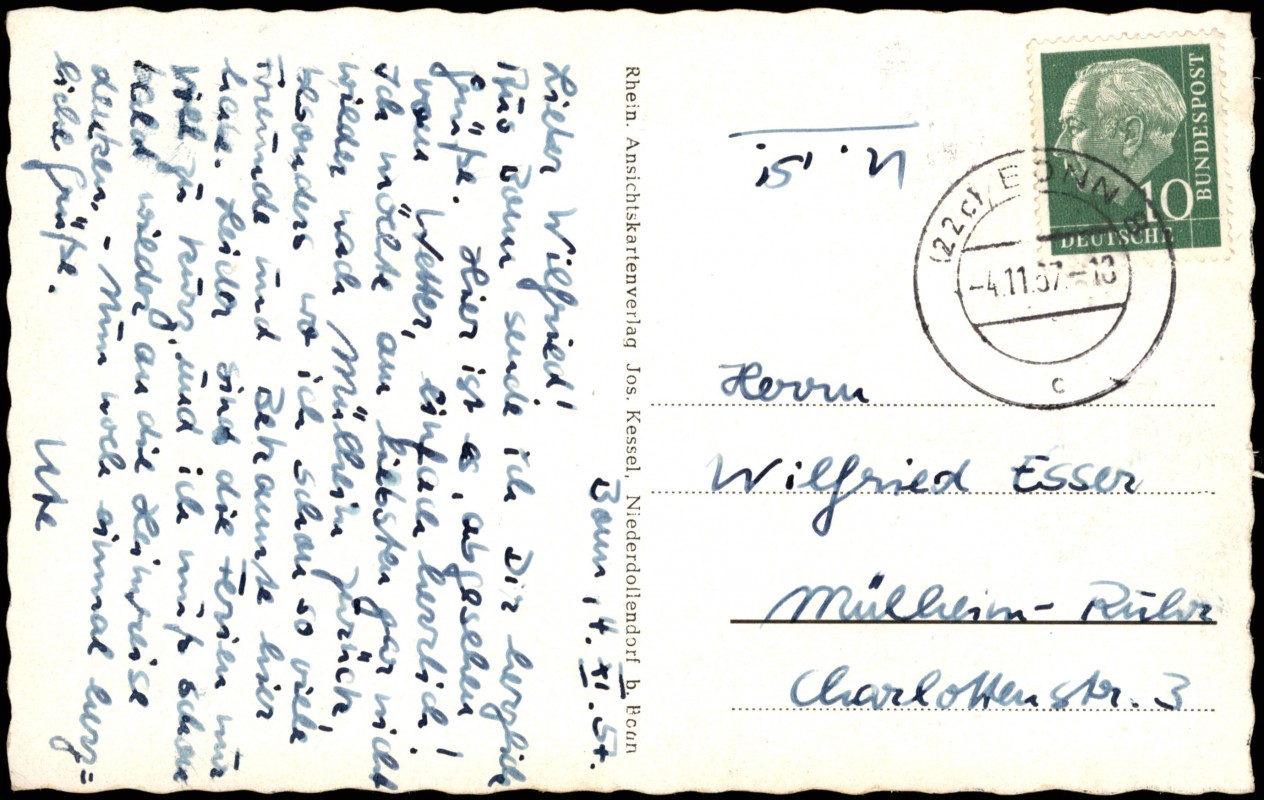 Bonn, 4. XI. 57.
Lieber Wilfried!
Aus Bonn sende ich Dir herzliche
Grüße. Hier ist es, abgesehen
vom Wetter, einfach herrlich!
Ich möchte am liebsten gar nicht
wieder nach Mülheim zurück,
besonders wo ich schon so viele
Freunde und Bekannte hier
habe. Leider sind die Ferien nur
viel zu kurz, und ich muß schon
bald wieder an die Heimreise
denken. – Nun noch einmal herz=
liche Grüße.
Ute
Rhein. Ansichtskartenverlag Jos. Kessel, Niederdollendorf b. Bonn
10
DEUTSCHE
BUNDESPOST
(22c) BONN
-4.11.57.-18
c
Herrn
Wilfried Esser
Mülheim-Ruhr
Charlottenstr. 3